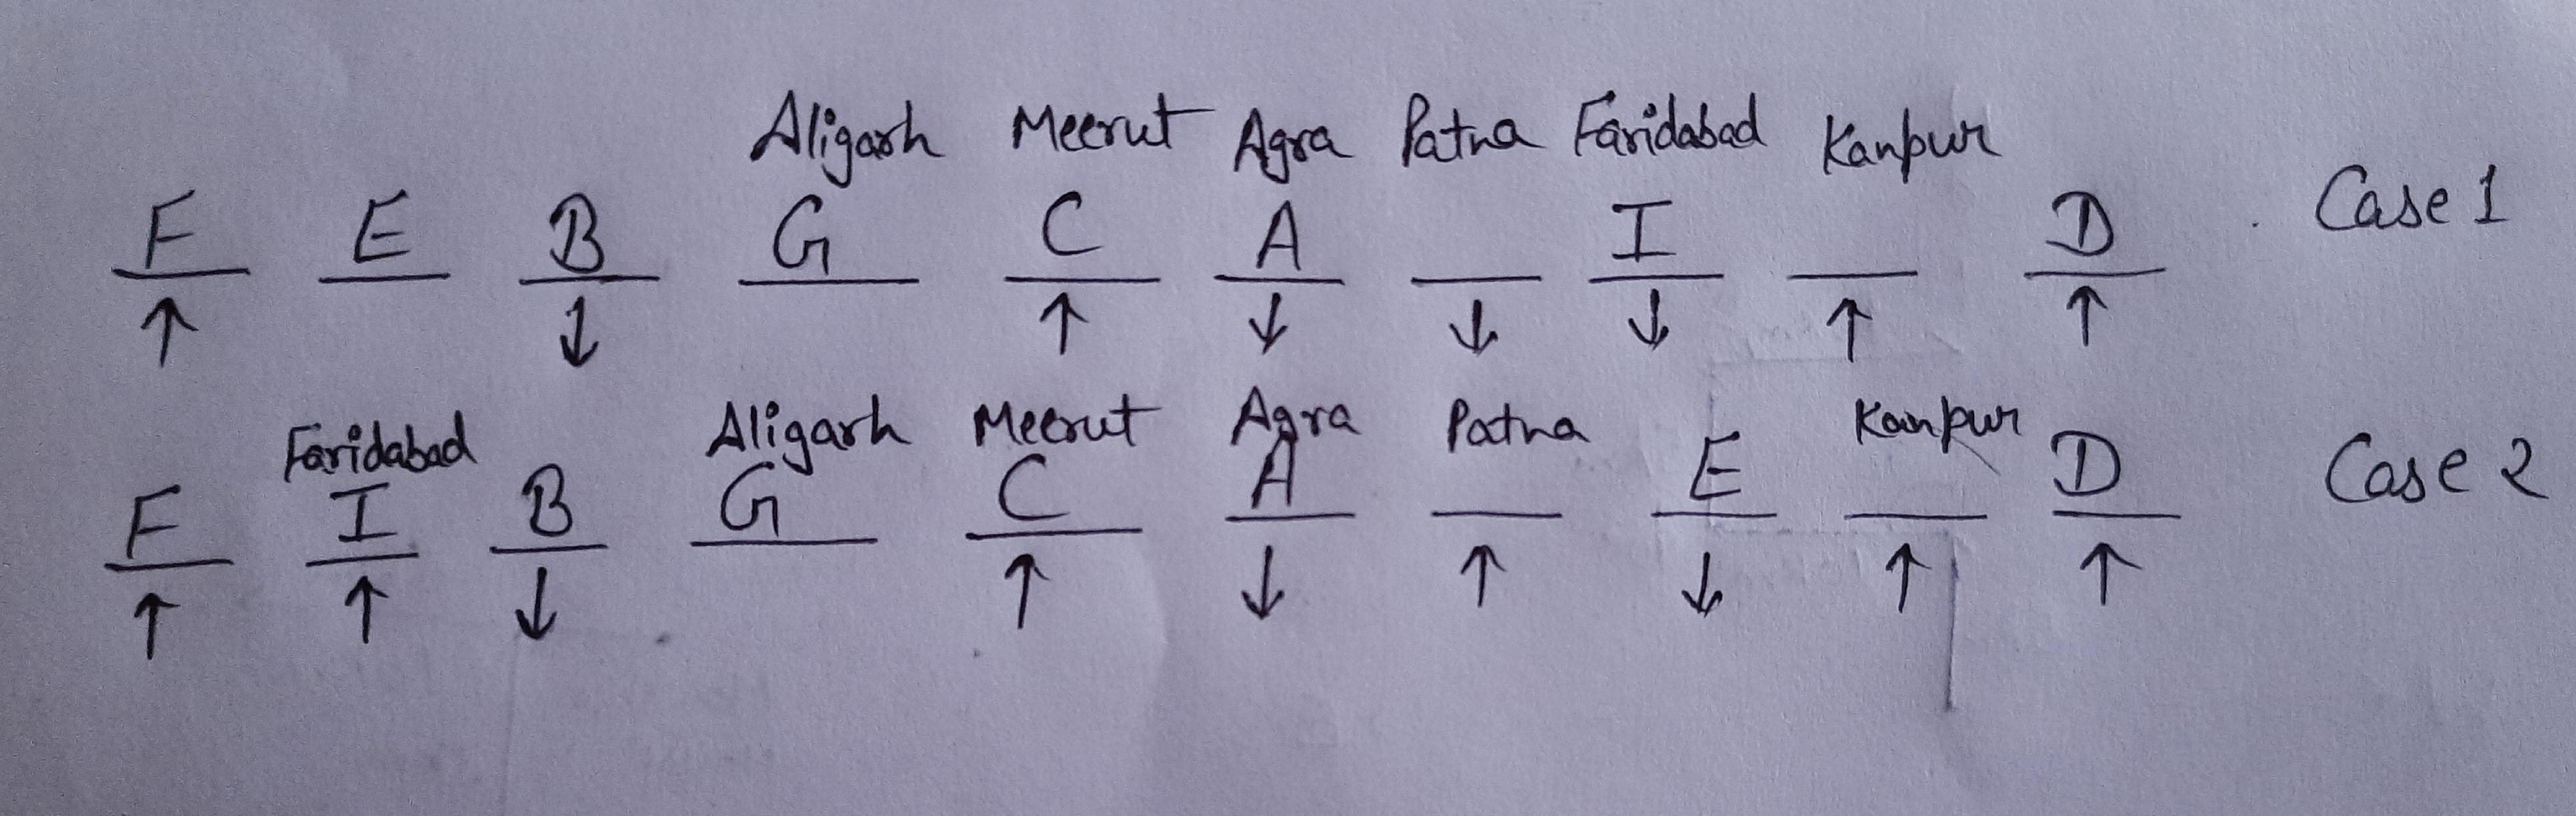 Aligarh Meerut Agra Patna Faridabad Kanpur
F E B G C A I D Case 1
↑ ↓ ↑ ↓ ↓ ↓ ↑ ↑
Faridabad Aligarh Meerut Agra Patna Kanpur
F I B G C A E D Case 2
↑ ↑ ↓ ↑ ↓ ↑ ↓ ↑ ↑